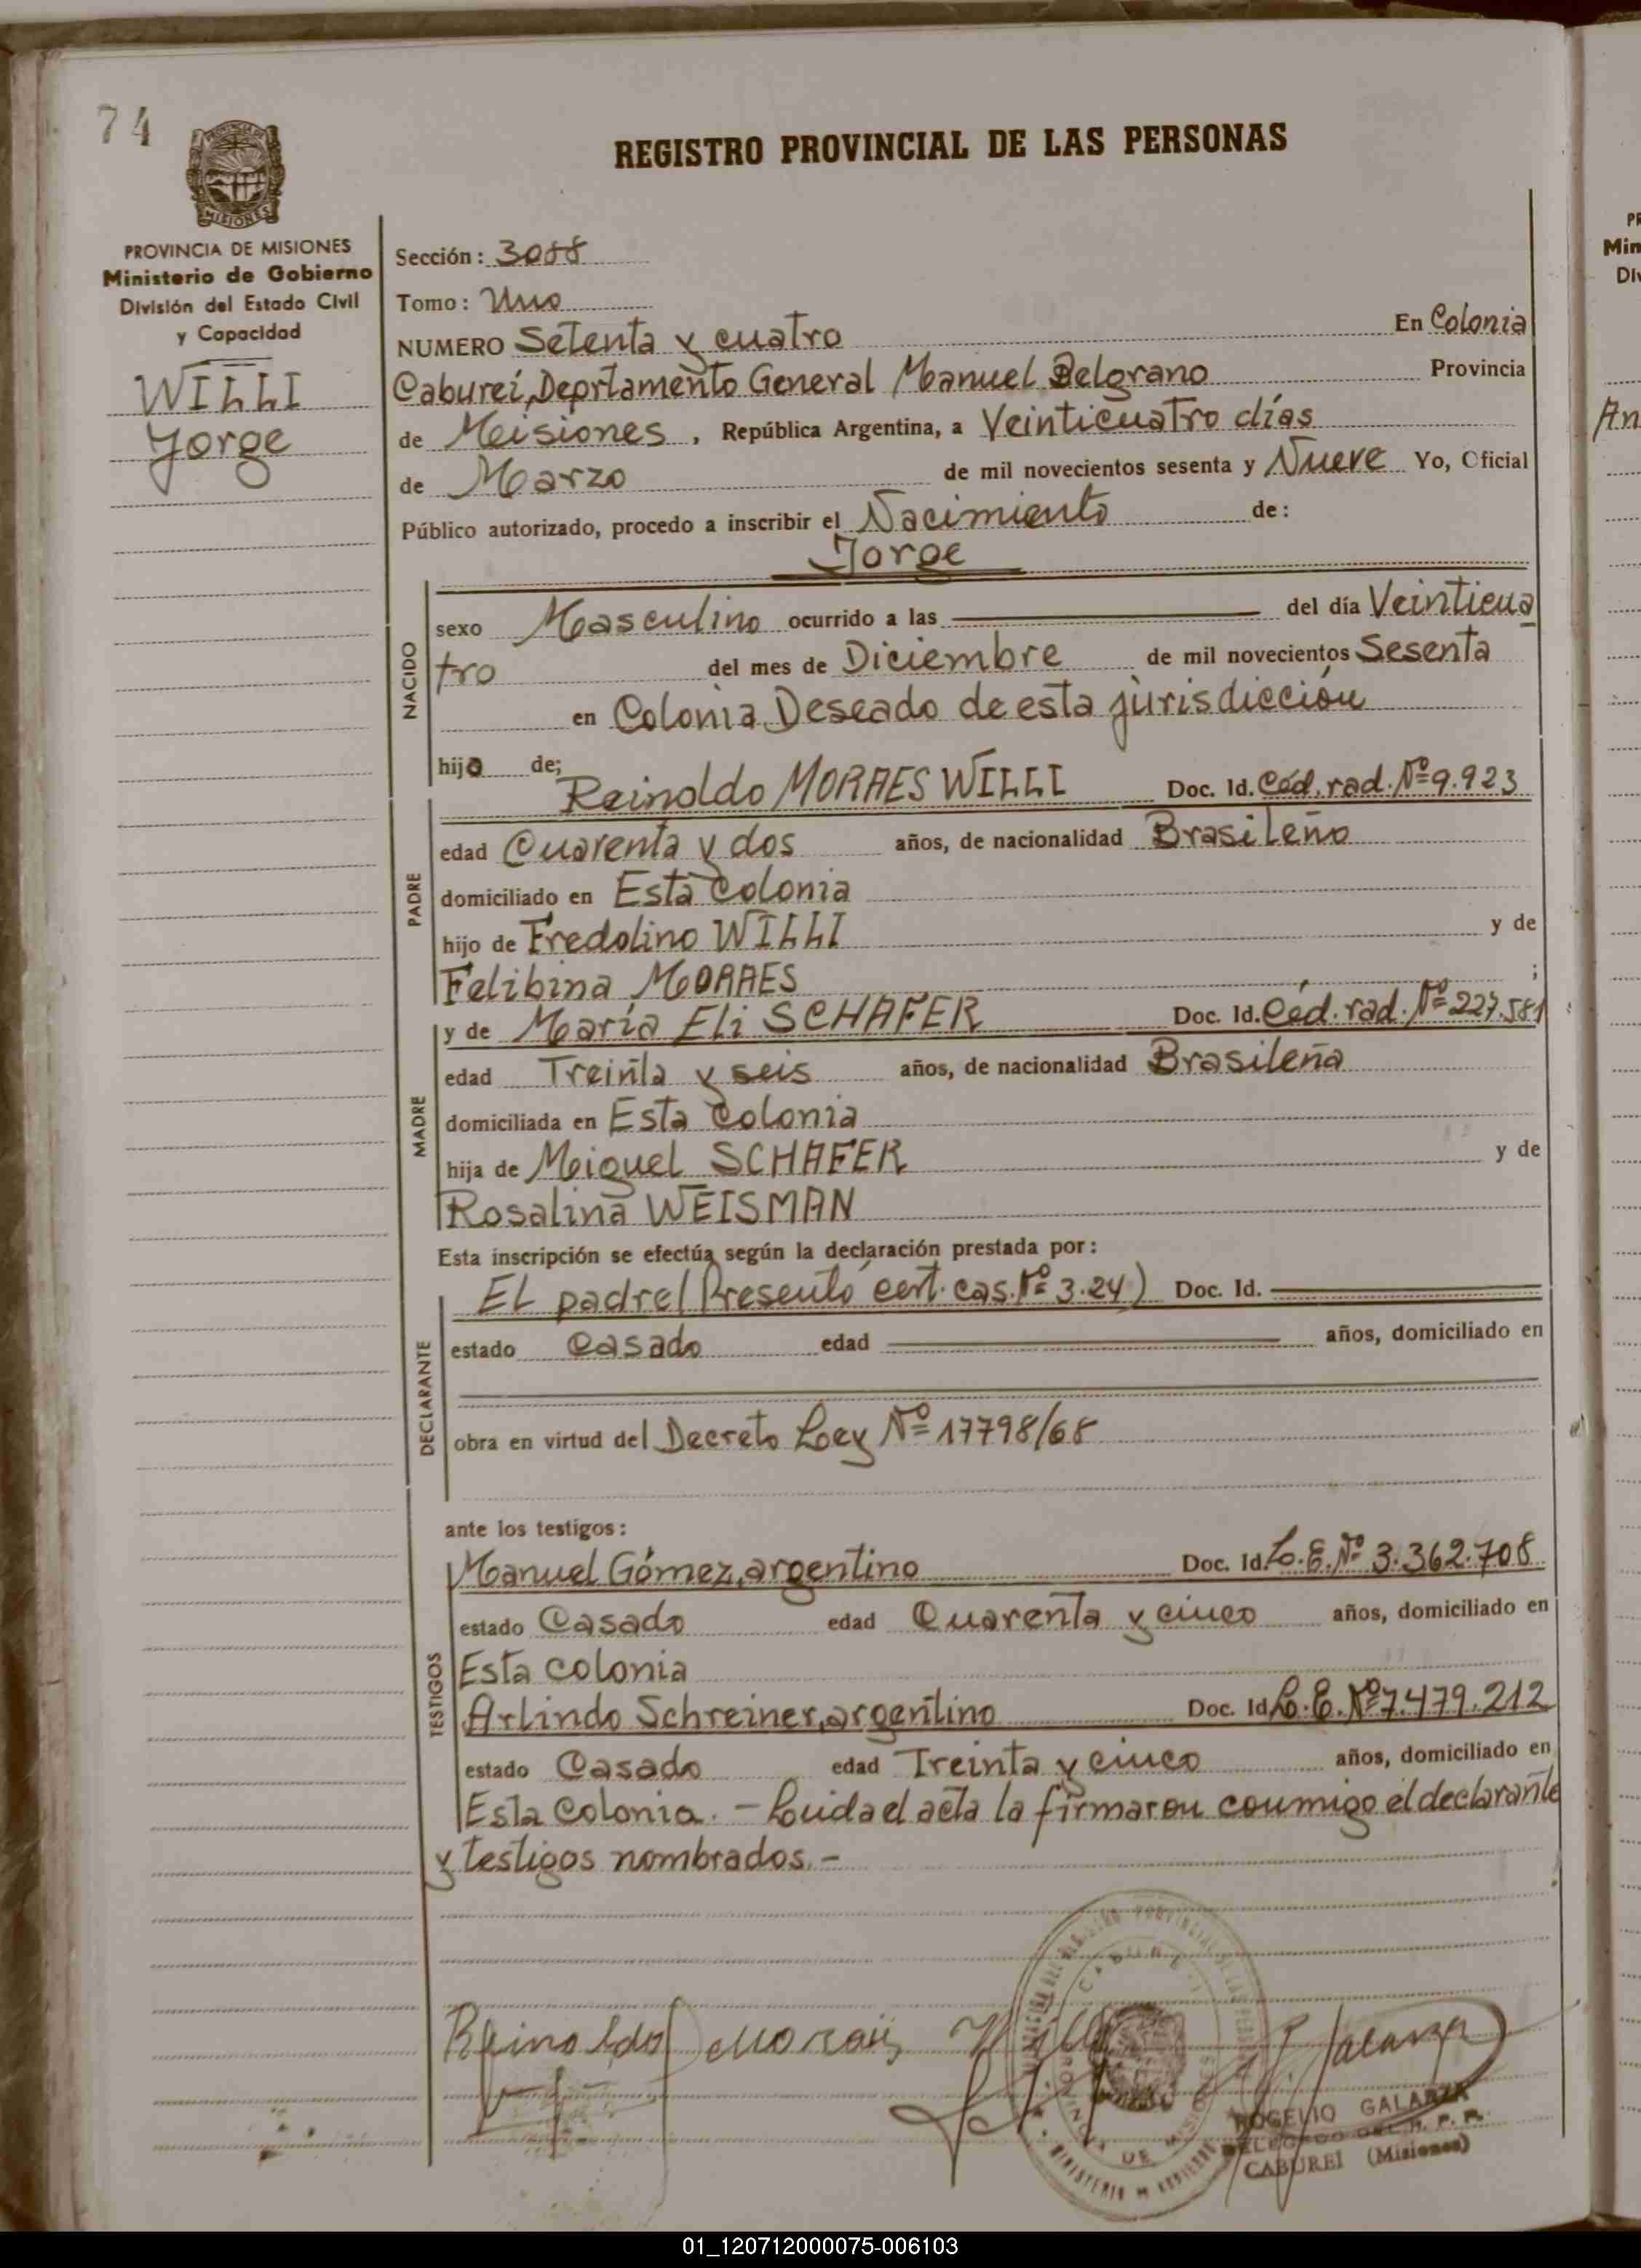 74
PROVINCIA DE MISIONES
REGISTRO PROVINCIAL DE LAS PERSONAS
PROVINCIA DE MISIONES
Ministerio de Gobierno
División del Estado Civil
y Capacidad
WILLI
Jorge
Sección: 3088
Tomo: Uno
NUMERO Setenta y cuatro En Colonia
Caburei, Deprtamento General Manuel Belgrano Provincia
de Misiones, República Argentina, a Veinticuatro días
de Marzo de mil novecientos sesenta y Nueve Yo, Oficial
Público autorizado, procedo a inscribir el Nacimiento de:
Jorge
NACIDO
sexo Masculino ocurrido a las del día Veinticua
tro del mes de Diciembre de mil novecientos Sesenta
en Colonia Deseado de esta jurisdicción
hijo de;
Reinoldo MORAES WILLI Doc. Id. Céd. rad. Nº 9.923
PADRE
edad Cuarenta y dos años, de nacionalidad Brasileño
domiciliado en Esta Colonia
hijo de Fredolino WILLI y de
Felibina MORAES ;
y de María Eli SCHAFER Doc. Id. Céd. rad. Nº 227.581
MADRE
edad Treinta y seis años, de nacionalidad Brasileña
domiciliada en Esta Colonia
hija de Miguel SCHAFER y de
Rosalina WEISMAN
Esta inscripción se efectúa según la declaración prestada por:
DECLARANTE
El padre (Presentó cert. cas. Nº 3.24) Doc. Id.
estado Casado edad años, domiciliado en
obra en virtud del Decreto Ley Nº 17798/68
ante los testigos:
TESTIGOS
Manuel Gómez, argentino Doc. Id. L.E. Nº 3.362.708
estado Casado edad Cuarenta y cinco años, domiciliado en
Esta colonia
Arlindo Schreiner, argentino Doc. Id. L.E. Nº 7.479.212
estado Casado edad Treinta y cinco años, domiciliado en
Esta Colonia. - Leida el acta la firmaron conmigo el declarante
y testigos nombrados. -
Reinoldo Moraes Willi
R. Galarza
CABUREI
ROGELIO GALARZA
DELEGADO DEL R. P. P.
CABUREI (Misiones)
PR
Min
Div
An
01_120712000075-006103